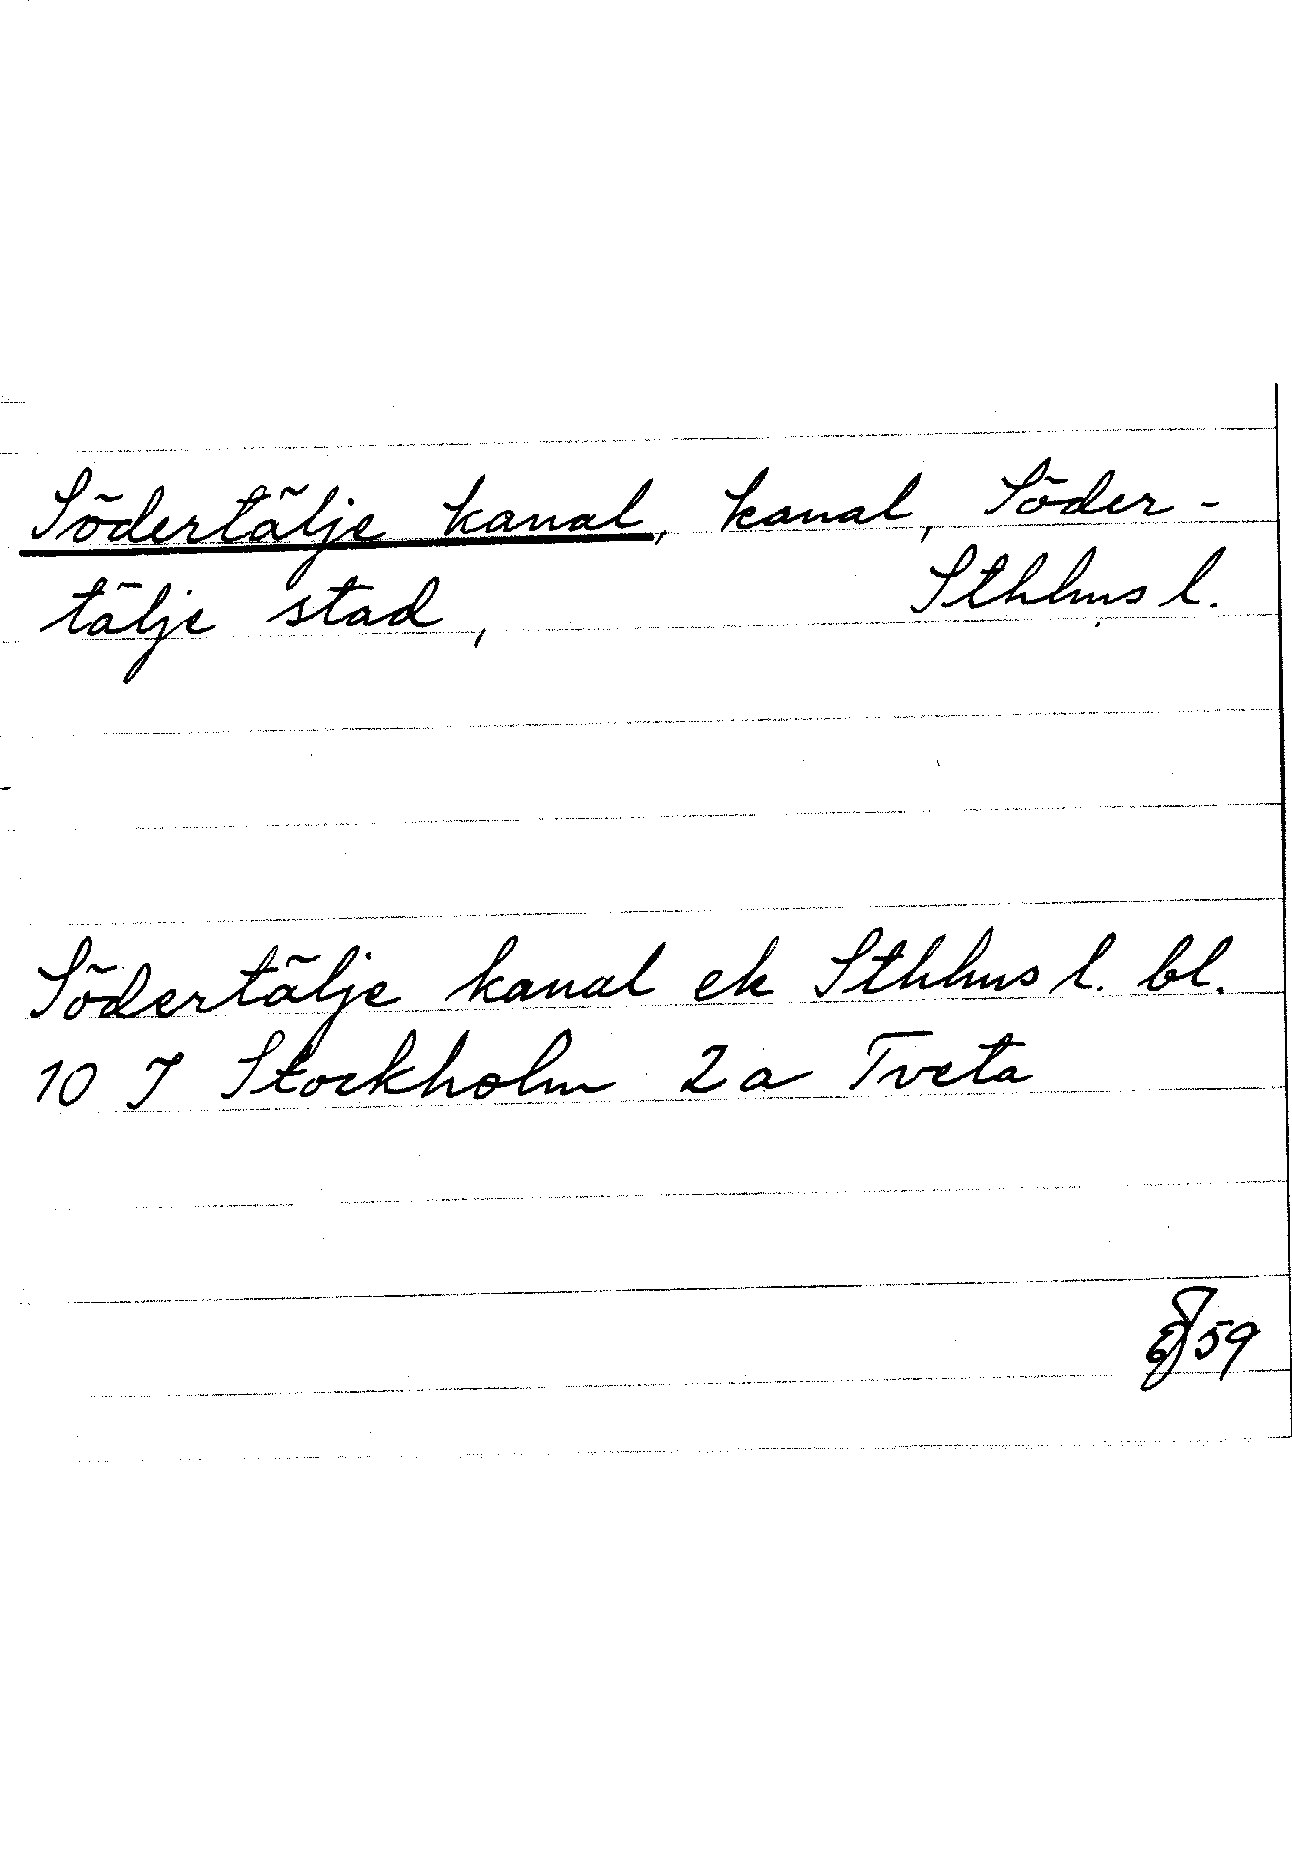 Södertälje kanal, kanal, Söder-
tälje stad, Sthlms l.
Södertälje kanal ek Sthlms l. bl.
10 I Stockholm 2a Tveta
59